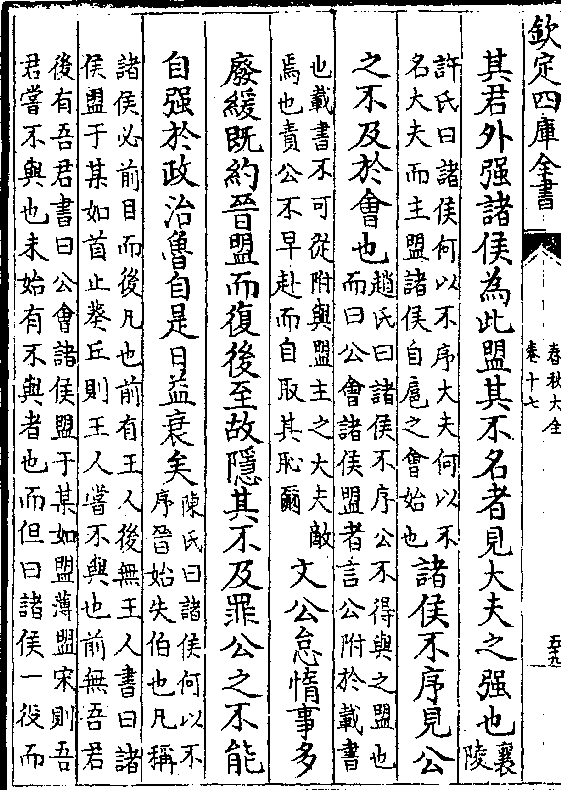 欽定四庫全書
春秋大全
卷十七
其君外强諸侯為此盟其不名者見大夫之强也襄陵
許氏曰諸侯何以不序大夫何以不
名大夫而主盟諸侯自扈之會始也
諸侯不序見公
之不及於會也
趙氏曰諸侯不序公不得與之盟也
而曰公會諸侯盟者言公附於載書
也載書不可從附與盟主之大夫敵
焉也責公不早赴而自取其恥爾
文公怠惰事多
廢緩既約晉盟而復後至故隱其不及罪公之不能
自强於政治魯自是日益衰矣
陳氏曰諸侯何以不
序晉始失伯也凡稱
諸侯必前目而後凡也前有王人後無王人書曰諸
侯盟于某如首止葵丘則王人嘗不與也前無吾君
後有吾君書曰公會諸侯盟于某如盟薄盟宋則吾
君嘗不與也未始有不與者也而但曰諸侯一役而